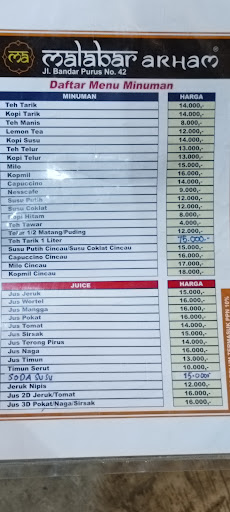 MA malabar arham
Jl. Bandar Purus No. 42
Daftar Menu Minuman
MINUMAN HARGA
Teh Tarik 14.000,-
Kopi Tarik 14.000,-
Teh Manis 8.000,-
Lemon Tea 12.000,-
Kopi Susu 14.000,-
Teh Telur 13.000,-
Kopi Telur 13.000,-
Milo 15.000,-
Kopmil 16.000,-
Capuccino 14.000,-
Nesscafe 9.000,-
Susu Putih 12.000,-
Susu Coklat 12.000,-
Kopi Hitam 8.000,-
Teh Tawar 4.000,-
Telur 1/2 Matang/Puding 12.000,-
Teh Tarik 1 Liter 75.000,-
Susu Putih Cincau/Susu Coklat Cincau 15.000,-
Capuccino Cincau 16.000,-
Milo Cincau 17.000,-
Kopmil Cincau 18.000,-
JUICE HARGA
Jus Jeruk 15.000,-
Jus Wortel 16.000,-
Jus Mangga 16.000,-
Jus Pokat 16.000,-
Jus Tomat 14.000,-
Jus Sirsak 15.000,-
Jus Terong Pirus 14.000,-
Jus Naga 16.000,-
Jus Timun 13.000,-
Timun Serut 10.000,-
SODA SUSU 15.000,-
Jeruk Nipis 12.000,-
Jus 2D Jeruk/Tomat 16.000,-
Jus 3D Pokat/Naga/Sirsak 16.000,-
TERMASUK PPN 10%